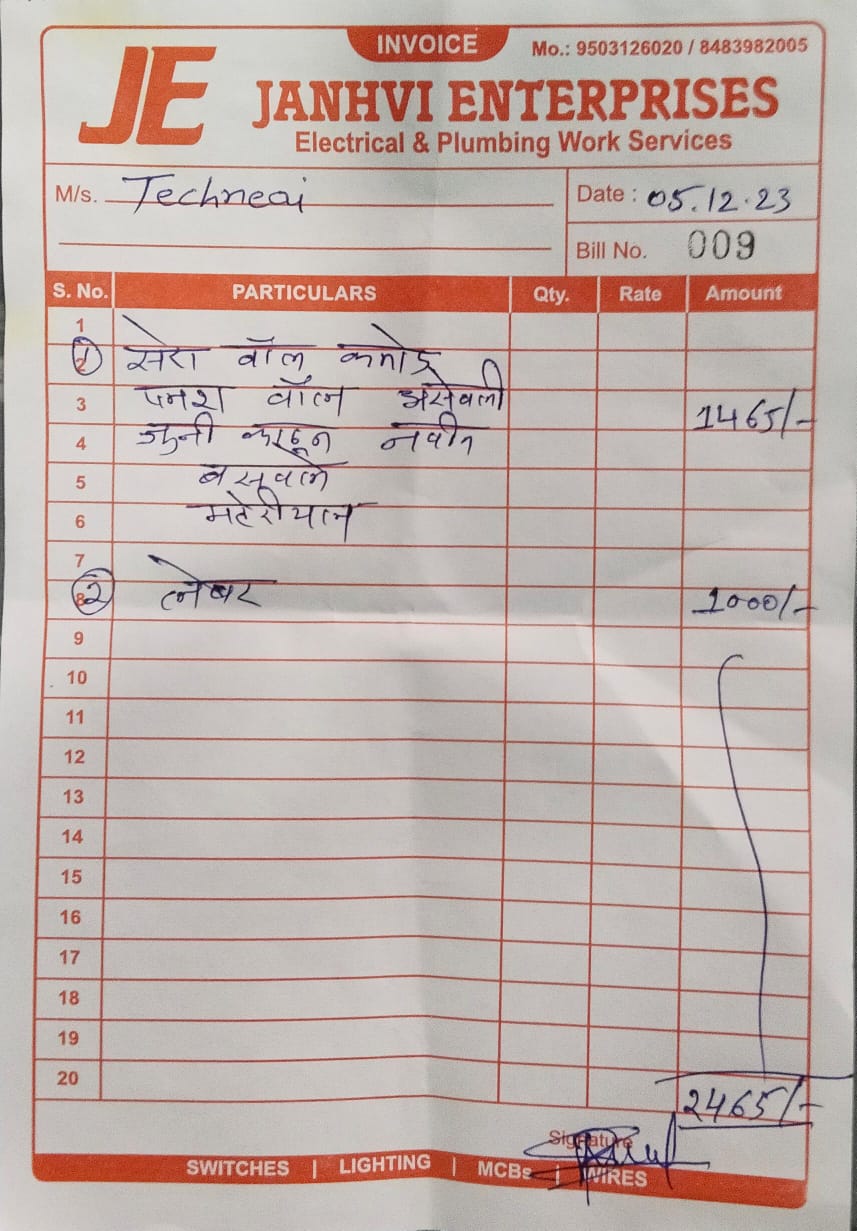 INVOICE
Mo.: 9503126020 / 8483982005
JE
JANHVI ENTERPRISES
Electrical & Plumbing Work Services
M/s. Techneai
Date : 05.12.23
Bill No. 009
S. No. PARTICULARS Qty. Rate Amount
1
2 ① सेरा वॉल कमोड
3 फ्लश वॉल असेंबली 1465/-
4 जुनी काढून नवीन
5 बसवले
6 मटेरीयल
7
8 ② लेबर 1000/-
9
10
11
12
13
14
15
16
17
18
19
20
2465/-
Signature
SWITCHES | LIGHTING | MCBs | WIRES